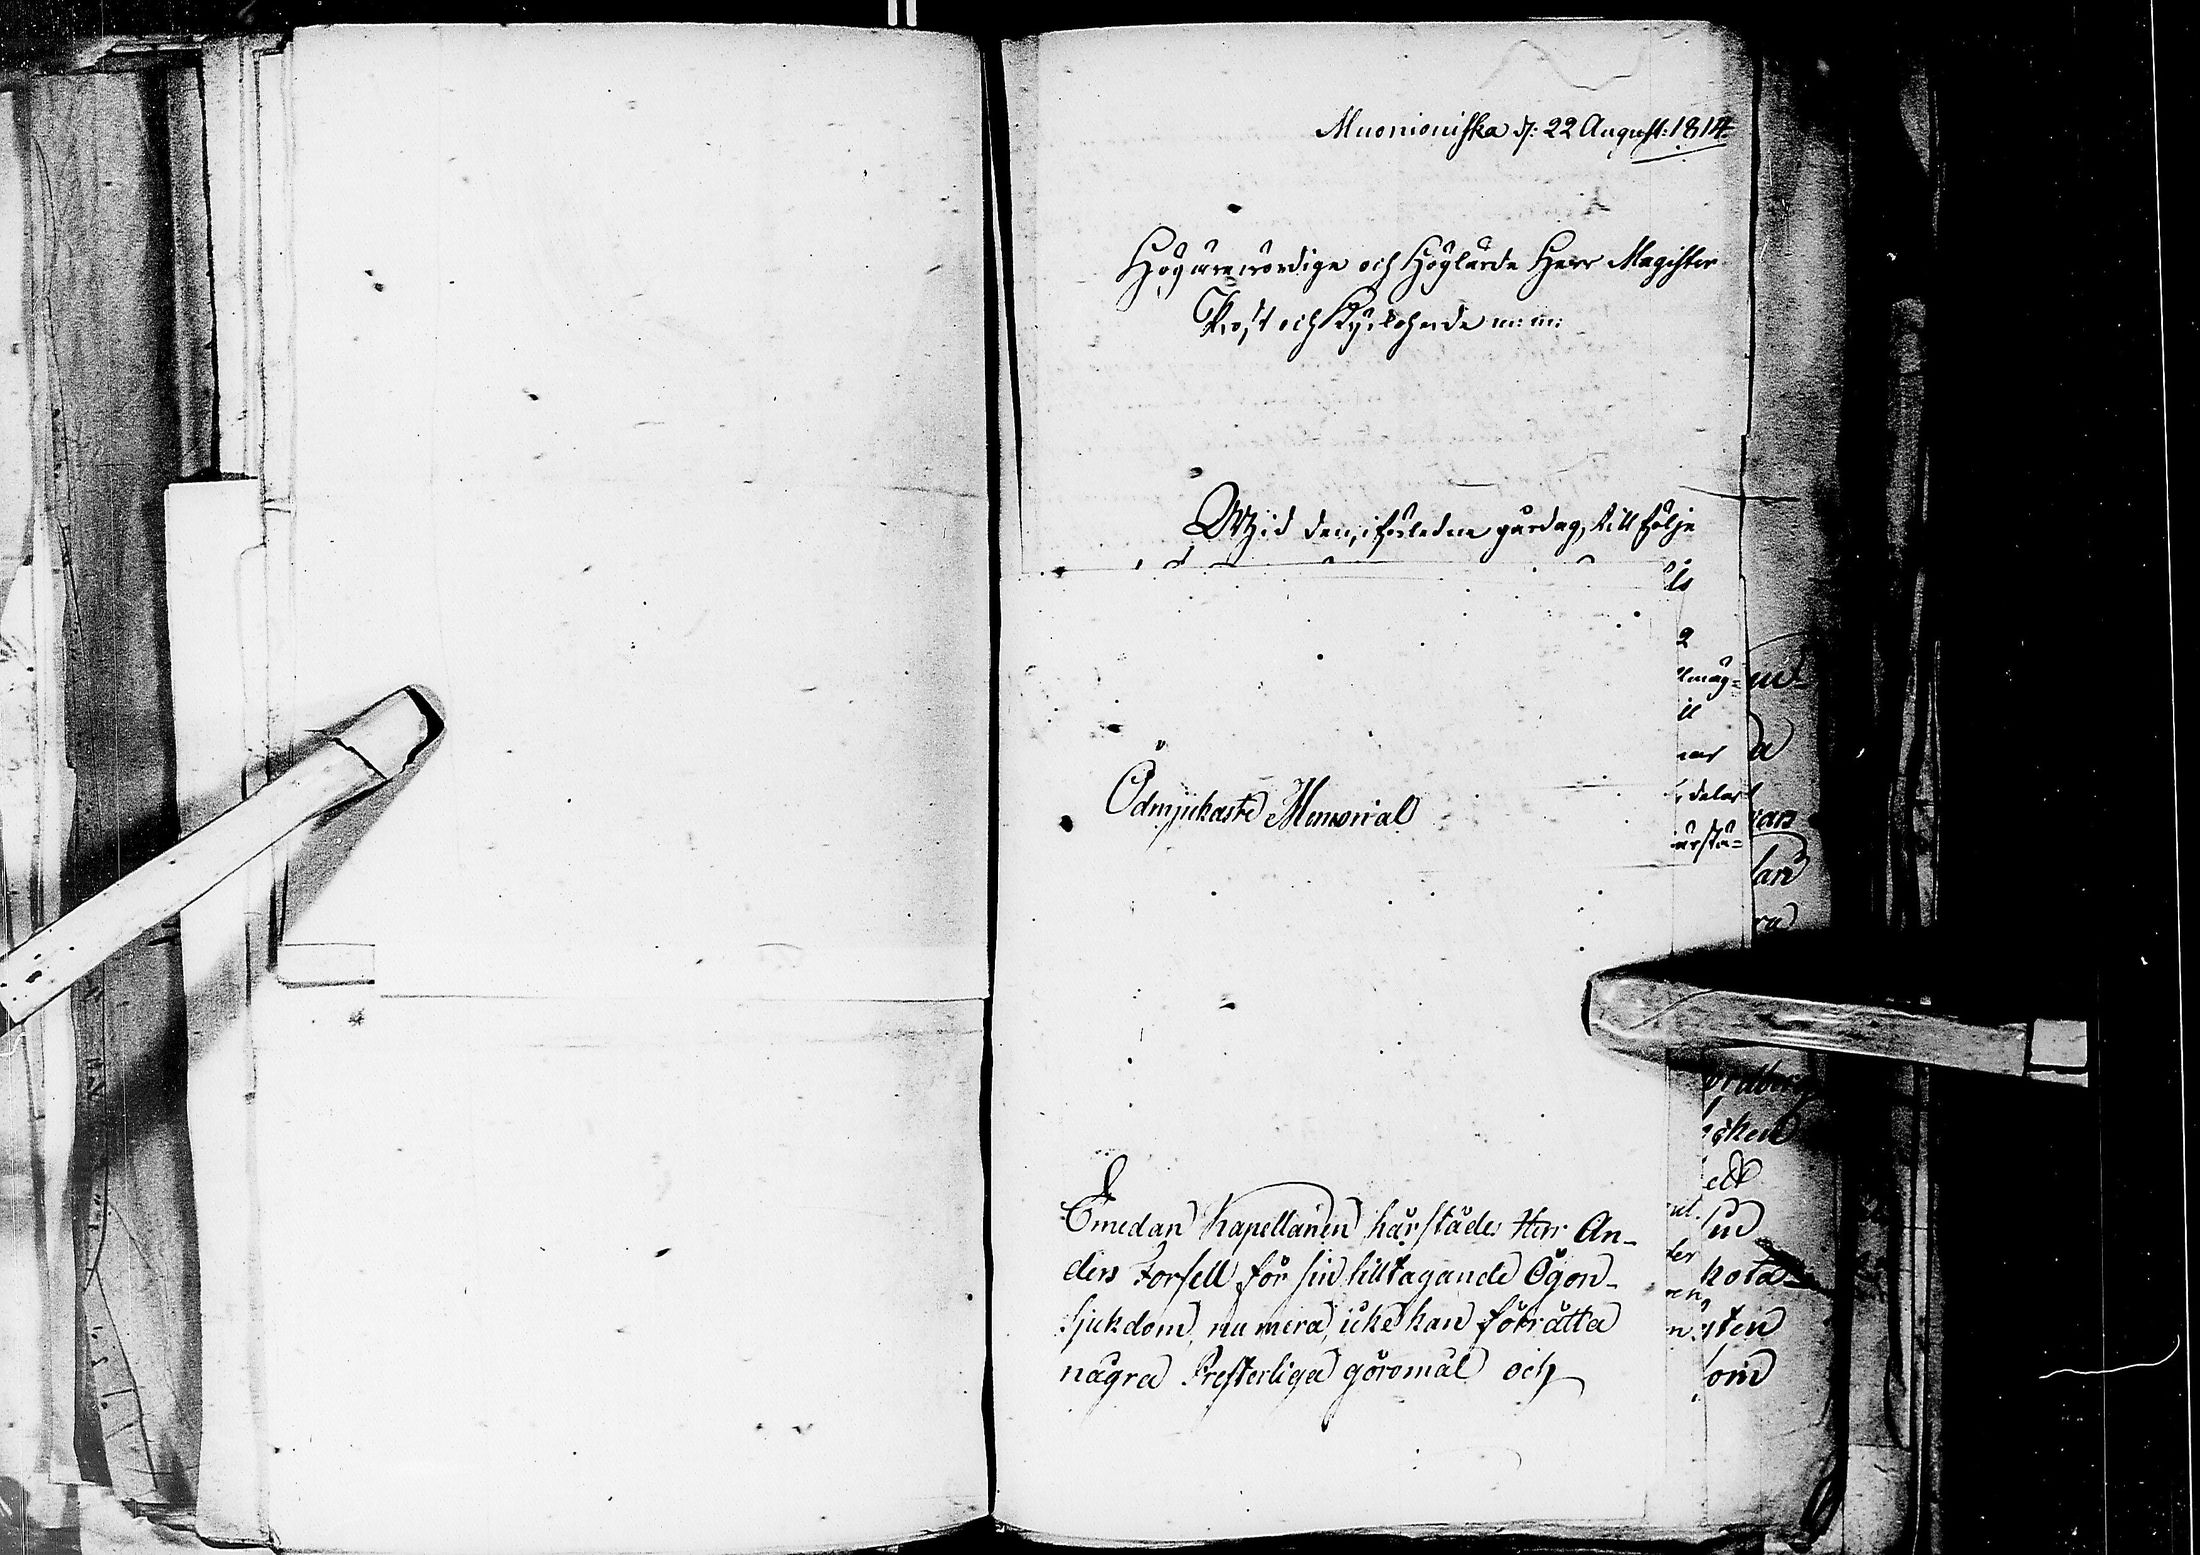 Muonioniska d: 22 August: 1814.
Högärewördige och Höglärde Herr Magister
Prost och Kyrkoherde m: m:
Wid den, i förledne gårdag, till följe
Ödmjukaste Memorial
Emedan Kapellanen härstädes Herr An-
ders Forsell för sin tilltagande Ögon-
sjukdom, nu mera, icke kan förrätta
några Presterliga göromål och